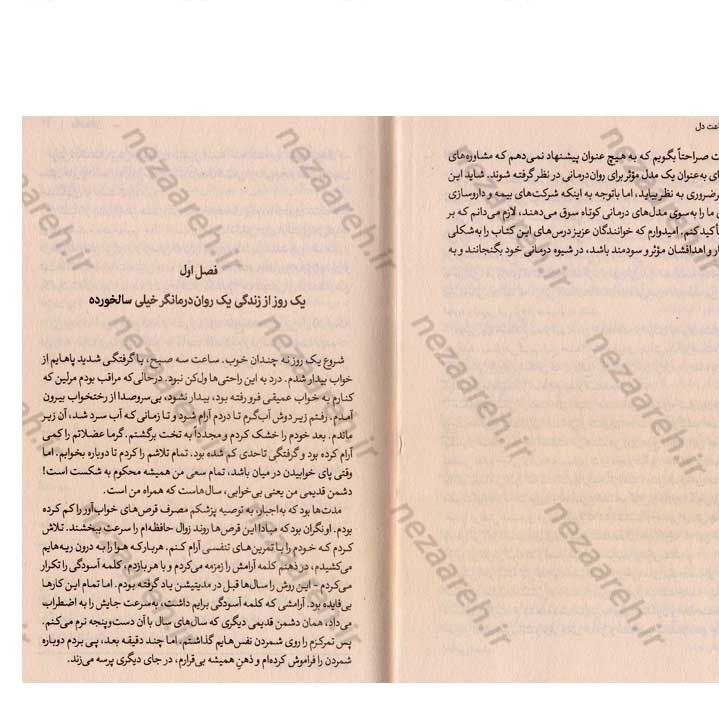 عت دل
ت صراحتاً بگویم که به هیچ عنوان پیشنهاد نمی‌دهم که مشاوره‌های
ای به‌عنوان یک مدل مؤثر برای روان‌درمانی در نظر گرفته شوند. شاید این
رضروری به نظر بیاید، اما باتوجه به اینکه شرکت‌های بیمه و داروسازی
ی ما را به‌سوی مدل‌های درمانی کوتاه سوق می‌دهند، لازم می‌دانم که بر
أکید کنم. امیدوارم که خوانندگان عزیز درس‌های این کتاب را به‌شکلی
ار و اهدافشان مؤثر و سودمند باشد، در شیوه درمانی خود بگنجانند و به
فصل اول
یک روز از زندگی یک روان‌درمانگر خیلی سالخورده
شروع یک روز نه چندان خوب. ساعت سه صبح، با گرفتگی شدید پاهایم از
خواب بیدار شدم. درد به این راحتی‌ها ول‌کن نبود. درحالی‌که مراقب بودم مرلین که
کنارم به خواب عمیقی فرو رفته بود، بیدار نشود، بی‌سروصدا از رختخواب بیرون
آمدم. رفتم زیر دوش آب‌گرم تا دردم آرام شود و تا زمانی که آب سرد شد، آن زیر
ماندم. بعد خودم را خشک کردم و مجدداً به تخت برگشتم. گرما عضلاتم را کمی
آرام کرده بود و گرفتگی تاحدی کم شده بود. تمام تلاشم را کردم تا دوباره بخوابم. اما
وقتی پای خوابیدن در میان باشد، تمام سعی من همیشه محکوم به شکست است!
دشمن قدیمی من یعنی بی‌خوابی، سال‌هاست که همراه من است.
مدت‌ها بود که به‌اجبار، به توصیه پزشکم مصرف قرص‌های خواب‌آور را کم کرده
بودم. او نگران بود که مبادا این قرص‌ها روند زوال حافظه‌ام را سرعت ببخشند. تلاش
کردم که خودم را با تمرین‌های تنفسی آرام کنم. هربار که هوا را به درون ریه‌هایم
می‌کشیدم، در ذهنم کلمه آرامش را زمزمه می‌کردم و با هر بازدم، کلمه آسودگی را تکرار
می‌کردم - این روش را سال‌ها قبل در مدیتیشن یاد گرفته بودم. اما تمام این کارها
بی‌فایده بود. آرامشی که کلمه آسودگی برایم داشت، به‌سرعت جایش را به اضطراب
می‌داد، همان دشمن قدیمی دیگری که سال‌های سال با آن دست‌وپنجه نرم می‌کنم.
پس تمرکزم را روی شمردن نفس‌هایم گذاشتم، اما چند دقیقه بعد، پی بردم دوباره
شمردن را فراموش کرده‌ام و ذهن همیشه بی‌قرارم، در جای دیگری پرسه می‌زند.
nezaareh.ir
nezaareh.ir
nezaareh.ir
nezaareh.ir
nezaareh.ir
nezaareh.ir
nezaareh.ir
nezaareh.ir
nezaareh.ir
nezaareh.ir